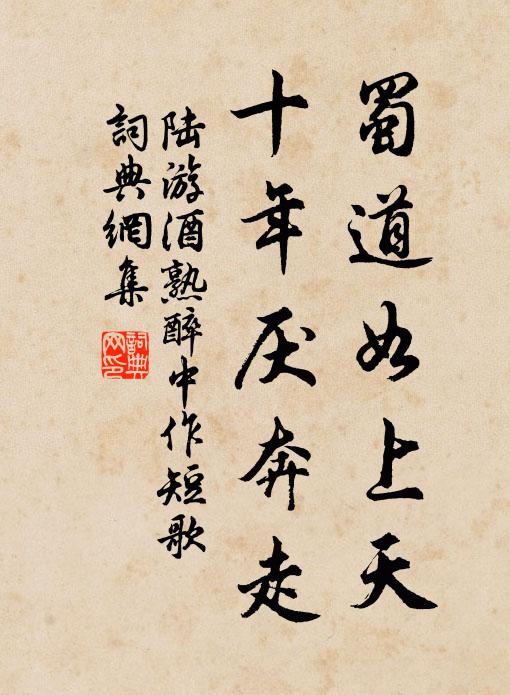 蜀道如上天
十年厌奔走
陆游酒熟醉中作短歌
詞典網集
詞典网印